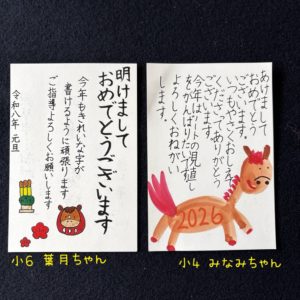 明けまして
おめでとうございます
今年もきれいな字が
書けるように頑張ります
ご指導よろしくお願いします
令和八年 元旦
小6 葉月ちゃん
あけまして
おめでとう
ございます。
いつもやさしくおしえ
てくださってありがとう
ございます。
今年はノートの見直し
をがんばりたいです。
よろしくおねがい
します。
2026
小4 みなみちゃん